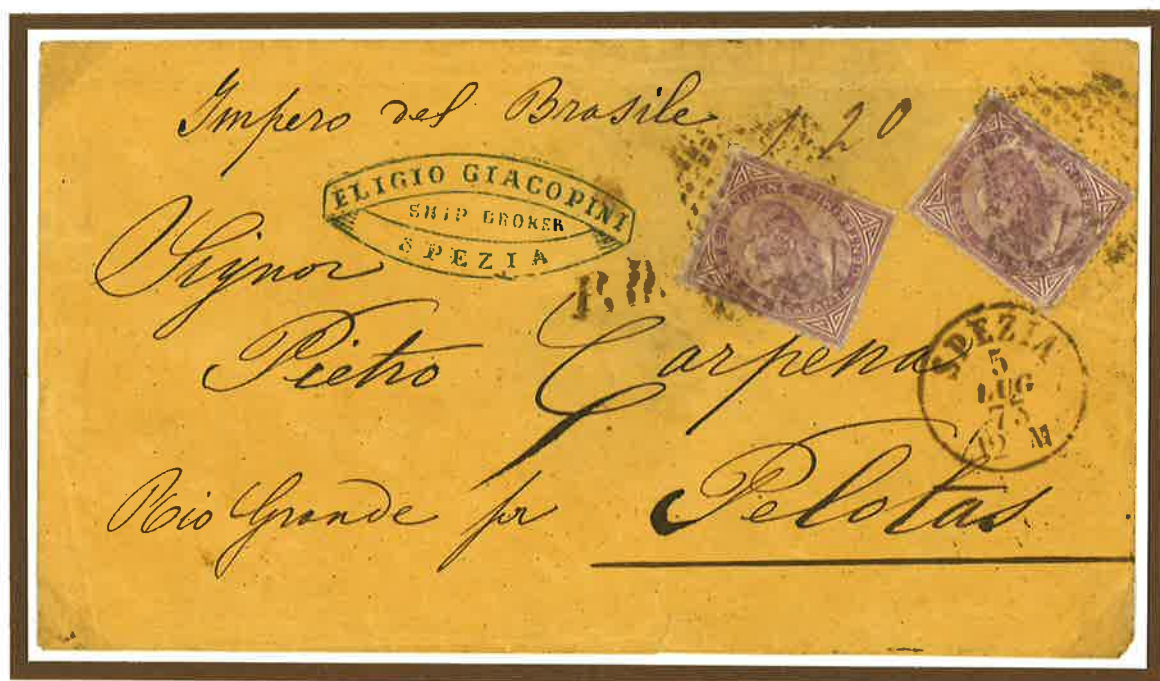 Impero del Brasile
1 2 0
ELIGIO GIACOPINI
SHIP BROKER
SPEZIA
Signor
P.D.
Pietro Carpena
SPEZIA
5
LUG
12 M
Rio Grande per Pelotas